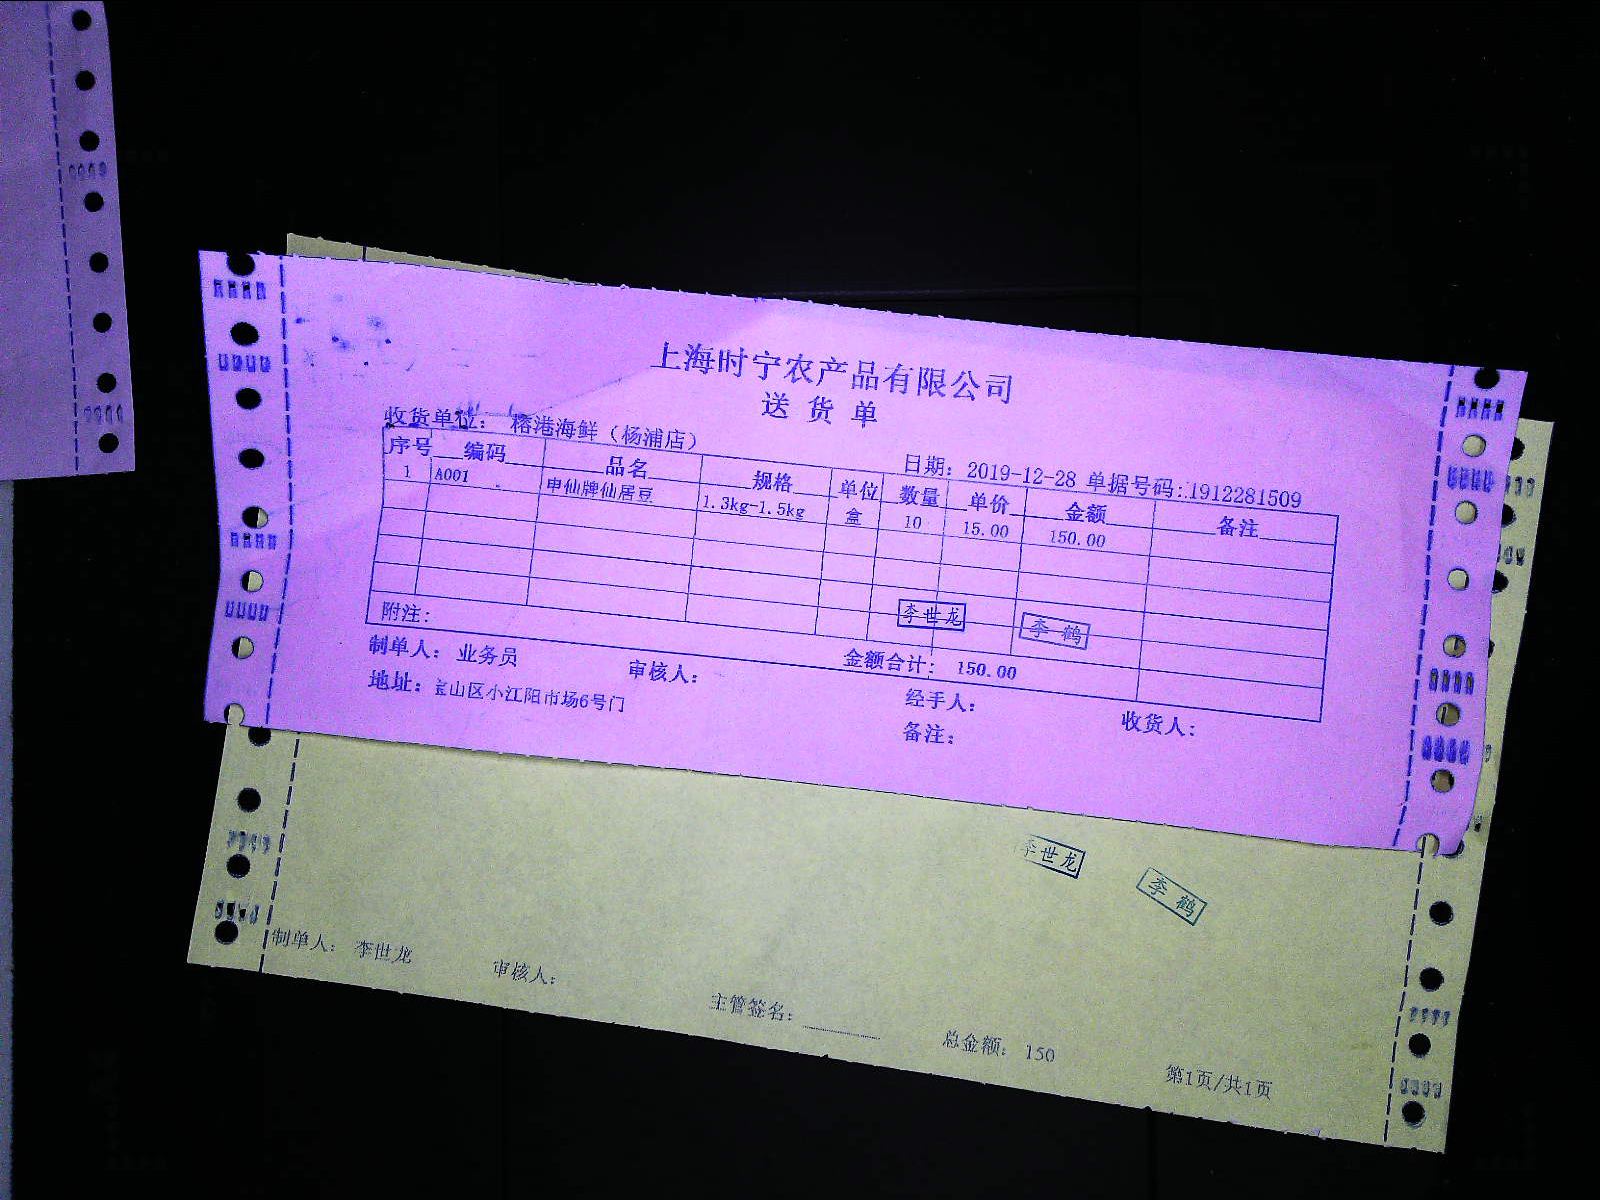 上海时宁农产品有限公司
送货单
收货单位： 榕港海鲜（杨浦店） 日期：2019-12-28 单据号码：1912281509
序号 编码 品名 规格 单位 数量 单价 金额 备注
1 A001 申仙牌仙居豆 1.3kg-1.5kg 盒 10 15.00 150.00
李世龙 李鹤
附注：
金额合计： 150.00
制单人： 业务员 审核人： 经手人： 收货人：
地址：宝山区小江阳市场6号门 备注：
李世龙 李鹤
制单人： 李世龙 审核人： 主管签名： 总金额： 150 第1页/共1页